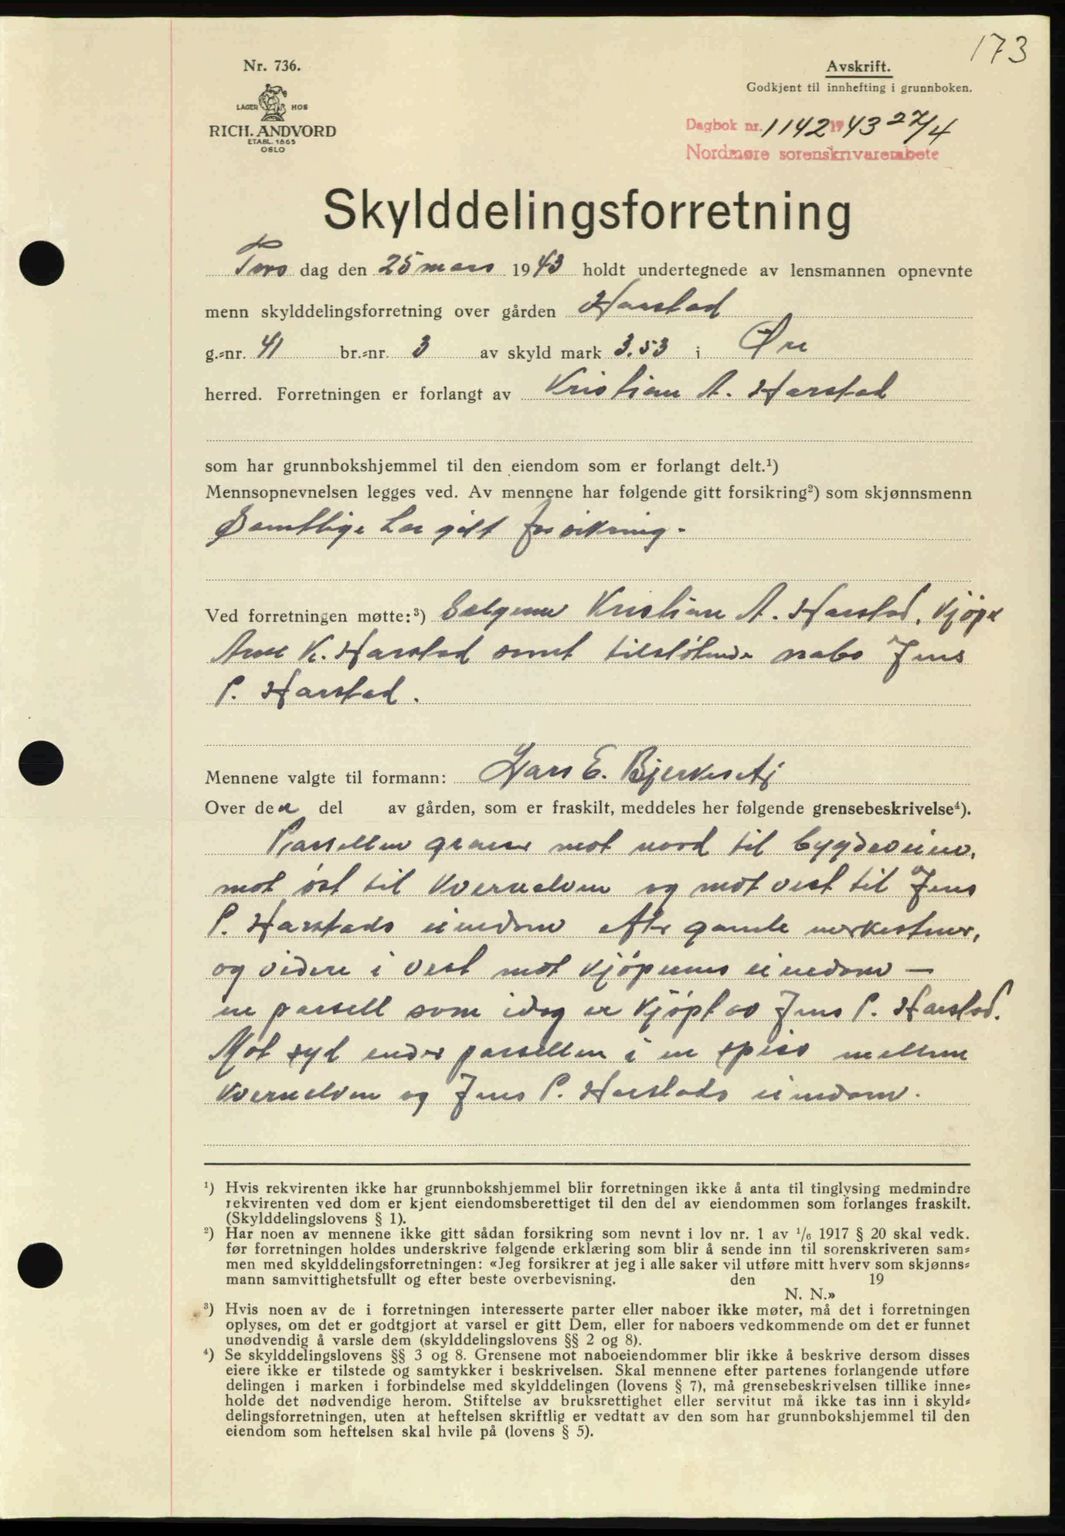 173
Nr. 736.
LAGER HOS
RICH. ANDVORD
ETABL. 1865
OSLO
Avskrift.
Godkjent til innhefting i grunnboken.
Dagbok nr. 1142 1943 27/4
Nordmøre sorenskrivarembete
Skylddelingsforretning
Tors dag den 25 mars 1943 holdt undertegnede av lensmannen opnevnte
menn skylddelingsforretning over gården Harstad
g.=nr. 41 br.=nr. 3 av skyld mark 3.53 i Øre
herred. Forretningen er forlangt av Kristian A. Harstad
som har grunnbokshjemmel til den eiendom som er forlangt delt.¹)
Mennsopnevnelsen legges ved. Av mennene har følgende gitt forsikring²) som skjønnsmenn
Samtlige har gitt forsikring.
Ved forretningen møtte:³) Selgeren Kristian A. Harstad, kjøper
Arne K. Harstad samt tilstøtende nabo Jens
P. Harstad.
Mennene valgte til formann: Lars E. Bjerkeset
Over den del av gården, som er fraskilt, meddeles her følgende grensebeskrivelse⁴).
Parsellen grenser mot nord til bygdeveien,
mot øst til Kvernelven og mot vest til Jens
P. Harstads eiendom efter gamle merkestener,
og videre i vest mot kjøperens eiendom —
en parsell som idag er kjøpt av Jens P. Harstad.
Mot syd ender parsellen i en spiss mellem
Kvernelven og Jens P. Harstads eiendom.
¹) Hvis rekvirenten ikke har grunnbokshjemmel blir forretningen ikke å anta til tinglysing medmindre
rekvirenten ved dom er kjent eiendomsberettiget til den del av eiendommen som forlanges fraskilt.
(Skylddelingslovens § 1).
²) Har noen av mennene ikke gitt sådan forsikring som nevnt i lov nr. 1 av ¹/₆ 1917 § 20 skal vedk.
før forretningen holdes underskrive følgende erklæring som blir å sende inn til sorenskriveren sam=
men med skylddelingsforretningen: «Jeg forsikrer at jeg i alle saker vil utføre mitt hverv som skjønns=
mann samvittighetsfullt og efter beste overbevisning. den 19
N. N.»
³) Hvis noen av de i forretningen interesserte parter eller naboer ikke møter, må det i forretningen
oplyses, om det er godtgjort at varsel er gitt Dem, eller for naboers vedkommende om det er funnet
unødvendig å varsle dem (skylddelingslovens §§ 2 og 8).
⁴) Se skylddelingslovens §§ 3 og 8. Grensene mot naboeiendommer blir ikke å beskrive dersom disses
eiere ikke er tilstede og samtykker i beskrivelsen. Skal mennene efter partenes forlangende utføre
delingen i marken i forbindelse med skylddelingen (lovens § 7), må grensebeskrivelsen tillike inne=
holde det nødvendige herom. Stiftelse av bruksrettighet eller servitut må ikke tas inn i skyld=
delingsforretningen, uten at heftelsen skriftlig er vedtatt av den som har grunnbokshjemmel til den
eiendom som heftelsen skal hvile på (lovens § 5).